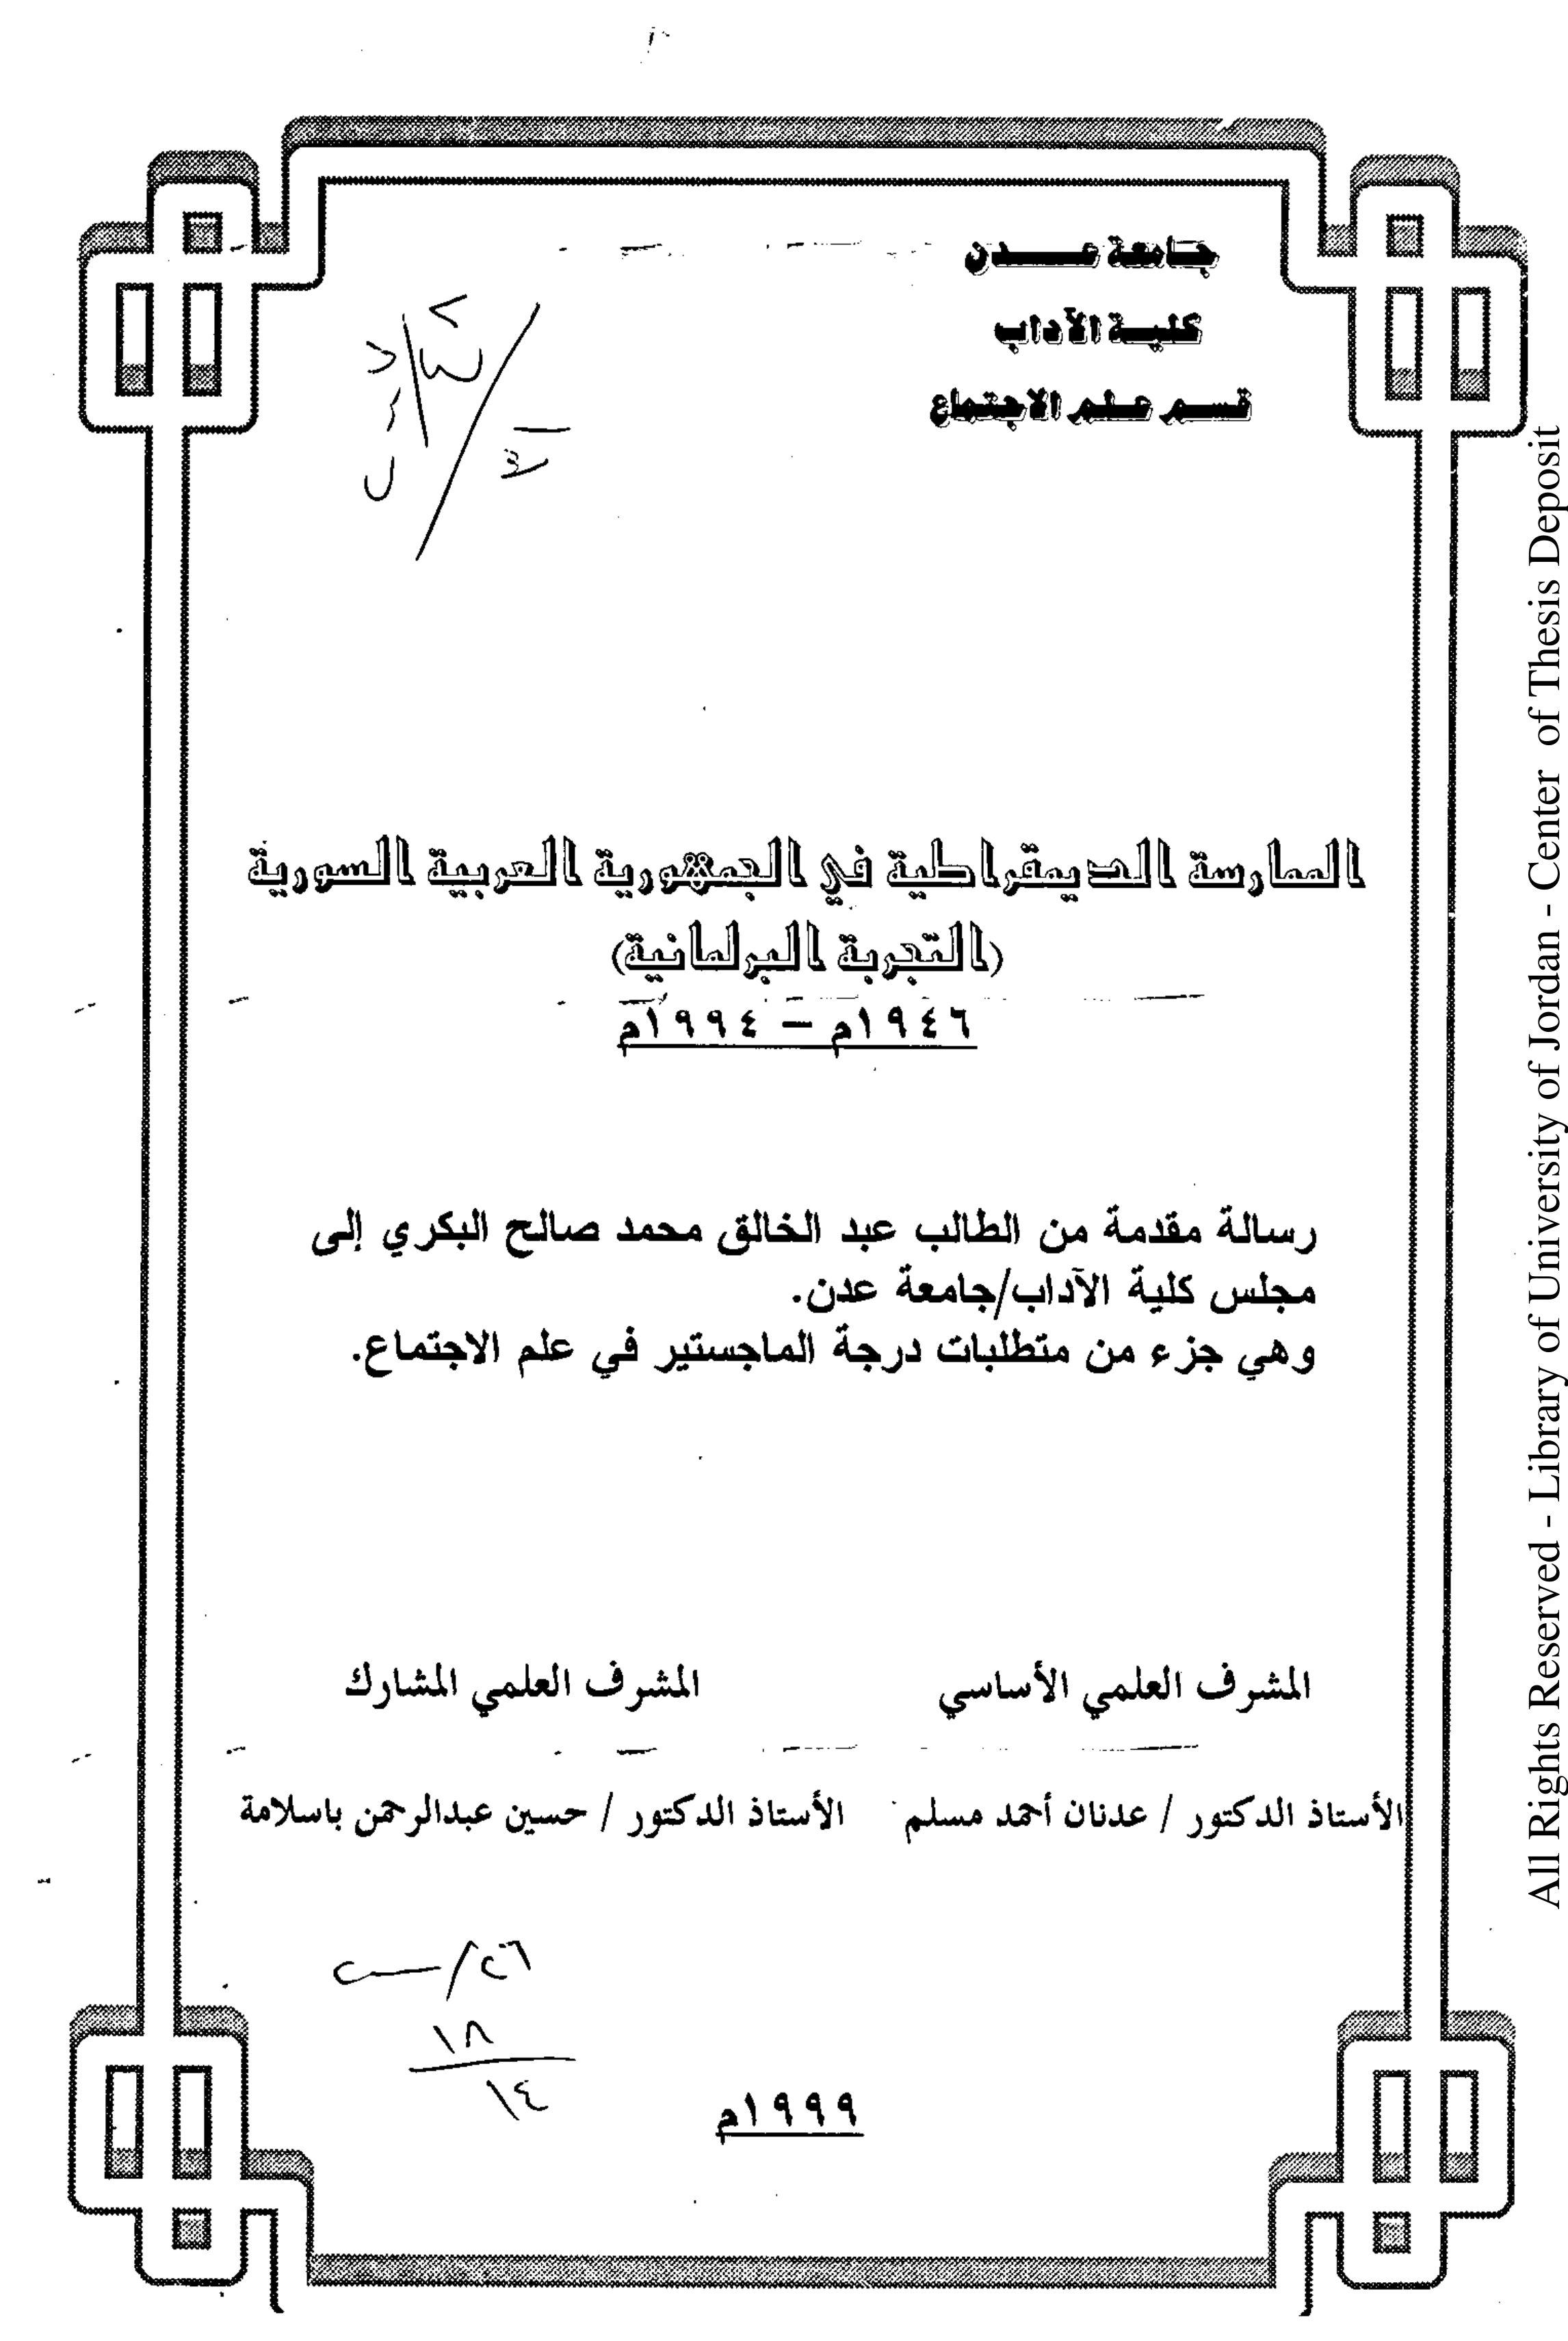 جامعة عدن
كلية الآداب
قسم علم الاجتماع
الممارسة الديمقراطية في الجمهورية العربية السورية
(التجربة البرلمانية)
١٩٤٦م – ١٩٩٤م
رسالة مقدمة من الطالب عبد الخالق محمد صالح البكري إلى
مجلس كلية الآداب/جامعة عدن.
وهي جزء من متطلبات درجة الماجستير في علم الاجتماع.
المشرف العلمي الأساسي المشرف العلمي المشارك
الأستاذ الدكتور / عدنان أحمد مسلم الأستاذ الدكتور / حسين عبدالرحمن باسلامة
١٨
١٤
١٩٩٩م
All Rights Reserved - Library of University of Jordan - Center of Thesis Deposit